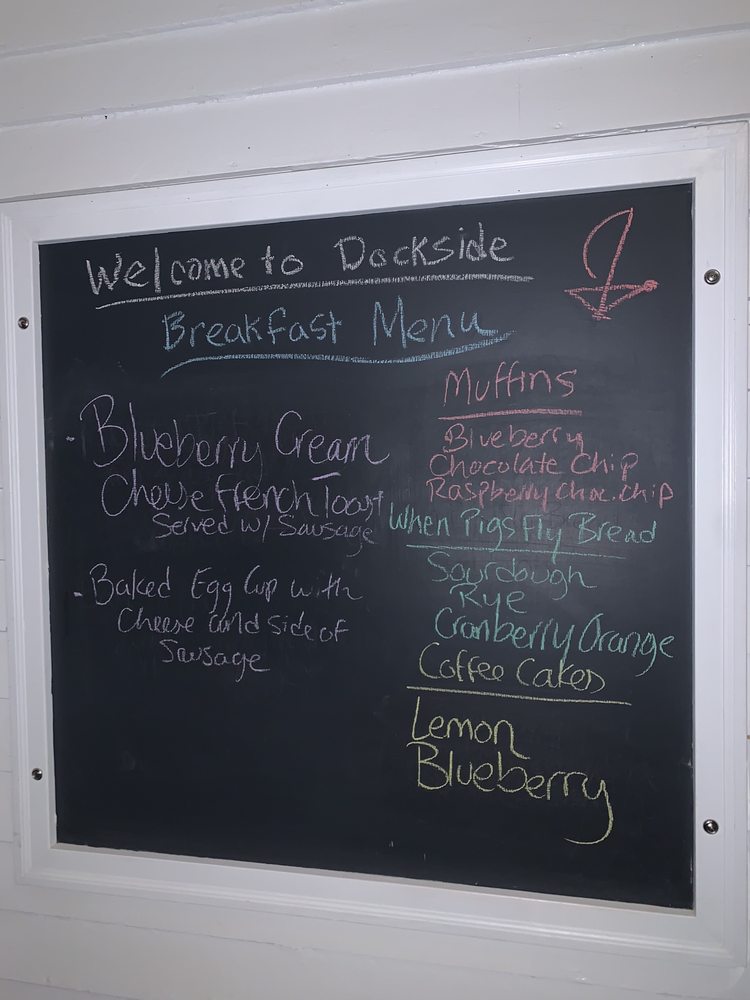 Welcome to Dockside
Breakfast Menu
- Blueberry Cream
Cheese French Toast
Served w/ Sausage
- Baked Egg Cup with
Cheese and side of
Sausage
Muffins
Blueberry
Chocolate Chip
Raspberry Choc. chip
When Pigs Fly Bread
Sourdough
Rye
Cranberry Orange
Coffee Cakes
Lemon
Blueberry